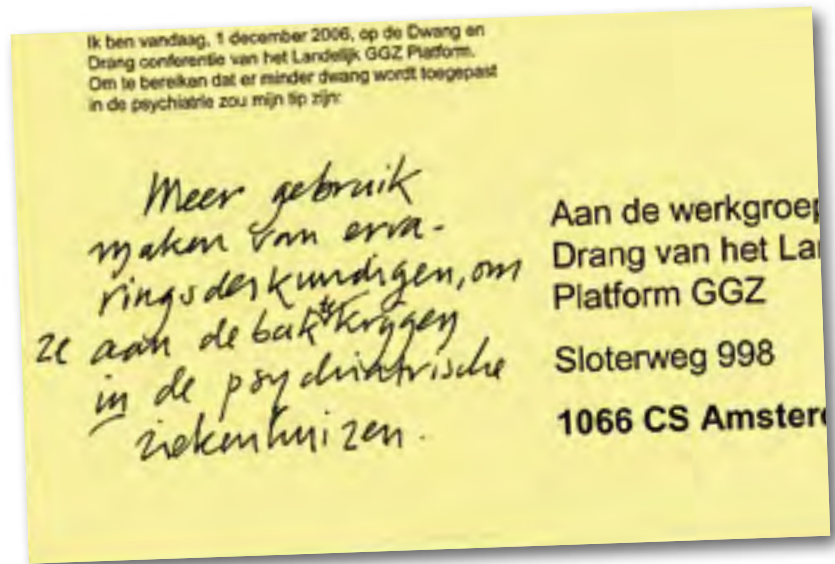 Ik ben vandaag, 1 december 2006, op de Dwang en
Drang conferentie van het Landelijk GGZ Platform.
Om te bereiken dat er minder dwang wordt toegepast
in de psychiatrie zou mijn tip zijn:
Meer gebruik
maken van erva-
ringsdeskundigen, om
ze aan de bak te krijgen
in de psychiatrische
ziekenhuizen.
Aan de werkgroep
Drang van het La
Platform GGZ
Sloterweg 998
1066 CS Amster